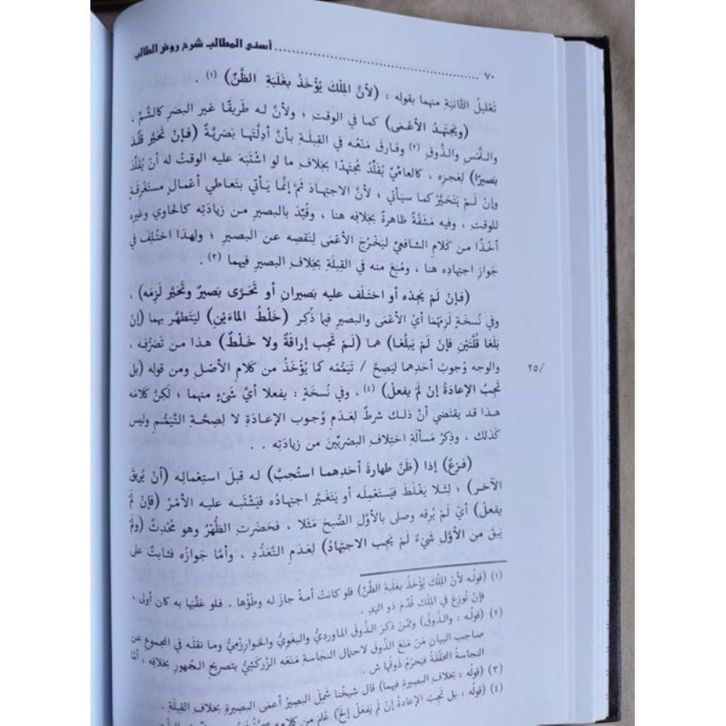 ٧٠ ........ أسنى المطالب شرح روض الطالب
تَعْلِيلُ الثَّانِيَةِ منهما بقولِه : (لأنَّ المِلْكَ يُؤْخَذُ بغَلَبَةِ الظَّنِّ) (١) .
(ويَجْتَهِدُ الأَعْمَى) كما في الوقتِ ؛ ولأنَّ له طَرِيقًا غير البصَرِ كالشَّمِّ ،
واللَّمْسِ والذَّوقِ (٢) وفارقَ مَنْعُه في القِبلَةِ بأنَّ أدِلَّتَها بَصَرِيَّةٌ (فإنْ تَحَيَّر قَلَّدَ
بَصِيرًا) لِعَجزِه ، كالعامِّيِّ يُقَلِّدُ مُجتَهِدًا بخلافِ ما لو اشْتَبَهَ عليه الوقتُ له أنْ يُقَلِّدَ
وإنْ لَمْ يَتَحَيَّرْ كما سيَأتي ؛ لأنَّ الاجتِهادَ ثَمَّ إنَّما يأتي بتَعاطي أعْمالٍ مستَغْرِقَةٍ
للوقتِ ، وفيه مَشَقَّةٌ ظاهرةٌ بخِلافِه هنا ، وقُيِّدَ بالبصيرِ من زيادَتِه كالحاوي وغيرِه
أخذًا من كلامِ الشافعيِّ ليَخْرُجَ الأعْمَى لِنَقصِه عن البصيرِ ؛ ولهذا اختُلِفَ في
جَوازِ اجتهادِه هنا ، ومُنِعَ منه في القِبلَةِ بخلافِ البصيرِ فيهما (٣) .
(فإنْ لَمْ يَجِدْه أو اختَلَفَ عليه بَصيرانِ أو تَحَرَّى بَصيرٌ وتَحَيَّر لَزِمَه) ،
وفي نُسْخَةٍ لَزِمَهُما أيْ الأعْمَى والبصير فيما ذُكِرَ (خَلْطُ الماءَيْنِ) ليَتَطَهَّر بهما (إنْ
بَلَغَا قُلَّتَيْنِ فإنْ لَمْ يَبلُغَا) هما (لَمْ تَجِب إراقَةٌ ولا خَلْطٌ) هذا من تَصَرُّفِه ،
والوجه وُجوبُ أحَدِهِما لِيَصِحَّ / تَيَمُّمُه كما يُؤْخَذُ من كلامِ الأصْلِ ومن قولِه (بل
٢٥/
تَجِبُ الإعادَةُ إنْ لَمْ يفعلْ) (٤) ، وفي نُسْخَةٍ : يفعلا أيْ شَيْءٍ منهما ؛ لَكِنَّ كلامَه
هذا قد يقتَضي أنَّ ذلك شرطٌ لِعَدَمِ وُجوبِ الإعادَةِ لا لِصِحَّةِ التَّيَمُّمِ وليس
كذلك ، وذِكرُ مَسألَةِ اختِلافِ البصيرَيْنِ من زيادَتِه .
(فَرْعٌ) إذا (ظَنَّ طهارةَ أحَدِهِما استُحِبَّ) له قبلَ استعمالِه (أنْ يُرِيقَ
الآخر) ، لِئلا يَغْلَطَ فيَسْتَعمِلَه أو يَتَغَيَّر اجتهادُه فيَشْتَبه عليه الأمْرُ (فإنْ لَمْ
يفعل) أيْ لَمْ يُرِقه وصلى بالأوَّلِ الصُّبحَ مَثَلًا ، فحَضَرَتِ الظُّهْرُ وهو مُحْدِثٌ (ولَمْ
يَبقَ من الأوَّلِ شَيْءٌ لَمْ يَجِبِ الاجتِهادُ) لِعَدَمِ التَّعَدُّدِ ، وأمَّا جَوازُه فثابتٌ على
(١) (قولُه لأنَّ المِلْكَ يُؤْخَذُ بغَلَبَةِ الظَّنِّ) فلو كانتْ أمةً جازَ له وطْؤُها . فلو عَفَّها به كان أولى ،
فإنْ نُوزِعَ في المِلْكِ قُدِّمَ ذو اليَدِ .
(٢) (قولُه : والذَّوقِ) ومِمَّنْ ذكرَ الذَّوقَ الماوردِيُّ والبغَوِيُّ والخوارِزْمِيُّ وما نقلَه في المجموعِ عن
صاحبِ البيانِ مَنْ مَنَعَ الذَّوقَ لاحتِمالِ النَّجاسَةِ مَنَعَه الزَّركَشِيُّ بتَصريحِ الجُمهورِ بخلافِه ، أمَّا
النَّجاسَةُ المُحَقَّقَةُ فيَحرُمُ ذَوقُها ش .
(٣) (قولُه : بخلافِ البصيرِ فيهما) قال شيخُنا شَمِلَ البصيرُ أعمى البَصيرَةِ بخلافِ القِبلَةِ .
(٤) (قولُه : بل تَجِبُ الإعادَةُ إنْ لَمْ يَفعلْ إلخ) عُلِمَ من كلامِه